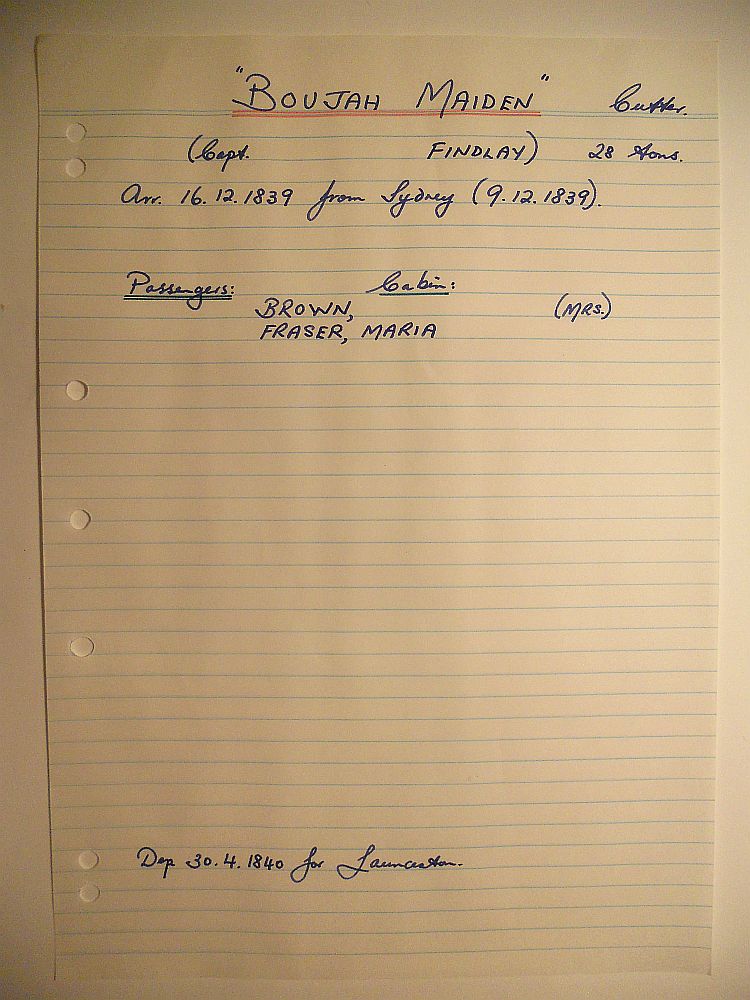 "BOUJAH MAIDEN" Cutter.
(Capt. FINDLAY) 28 tons.
Arr. 16.12.1839 from Sydney (9.12.1839).
Passengers: Cabin:
BROWN, (MRS.)
FRASER, MARIA
Dep 30.4.1840 for Launceston.